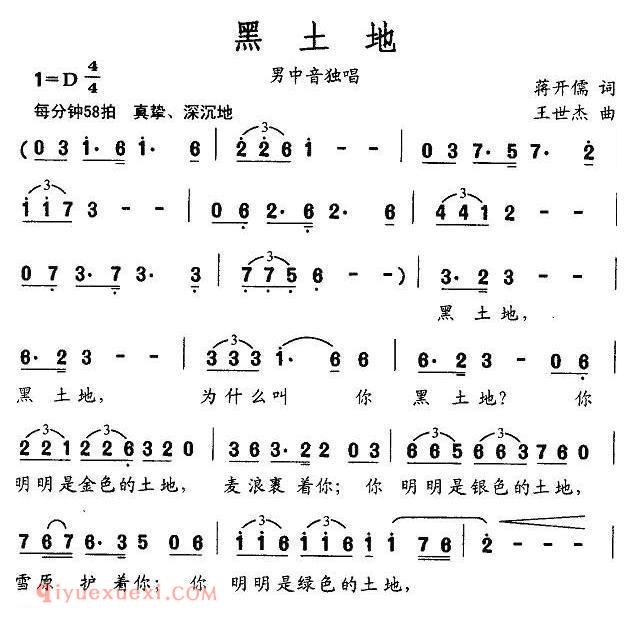 黑土地
1=D 4/4
男中音独唱
蒋开儒 词
每分钟58拍 真挚、深沉地
王世杰 曲
(0 3 i· 6 i· 6 | 2 2 6 i - - | 0 3 7· 5 7· 2
i i 7 3 - - | 0 6 2· 6 2· 6 | 4 4 1 2 - -
0 7 3· 7 3· 3 | 7 7 5 6 - -) | 3· 2 3 - -
黑 土 地，
6· 2 3 - - | 3 3 3 i· 6 6 | 6· 2 3 - 0 6
黑 土 地， 为什么叫 你 黑 土地？ 你
2 2 1 2 2 6 3 2 0 | 3 6 3· 2 2 0 3 | 6 6 5 6 6 3 7 6 0
明明是金色的土地， 麦浪裹着你；你 明明是银色的土地，
7 6 7 6· 3 5 0 6 | i i 6 i i 6 i i 7 6 | 2 - -
雪原 护着你；你 明明是绿色的土地，
qiyuexuexi.com